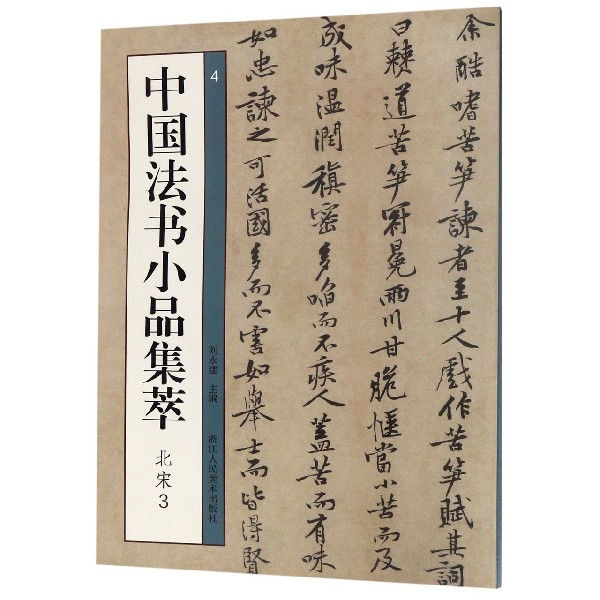 4
中国法书小品集萃
北宋3
刘永建 主编
浙江人民美术出版社
余酷嗜苦笋諫者至十人戲作苦笋賦其詞
曰棘道苦笋冠冕兩川甘脆愜當小苦而及
成味温潤稹密多啗而不疾人蓋苦而有味
如忠諫之可活國多而不害如舉士而皆得賢